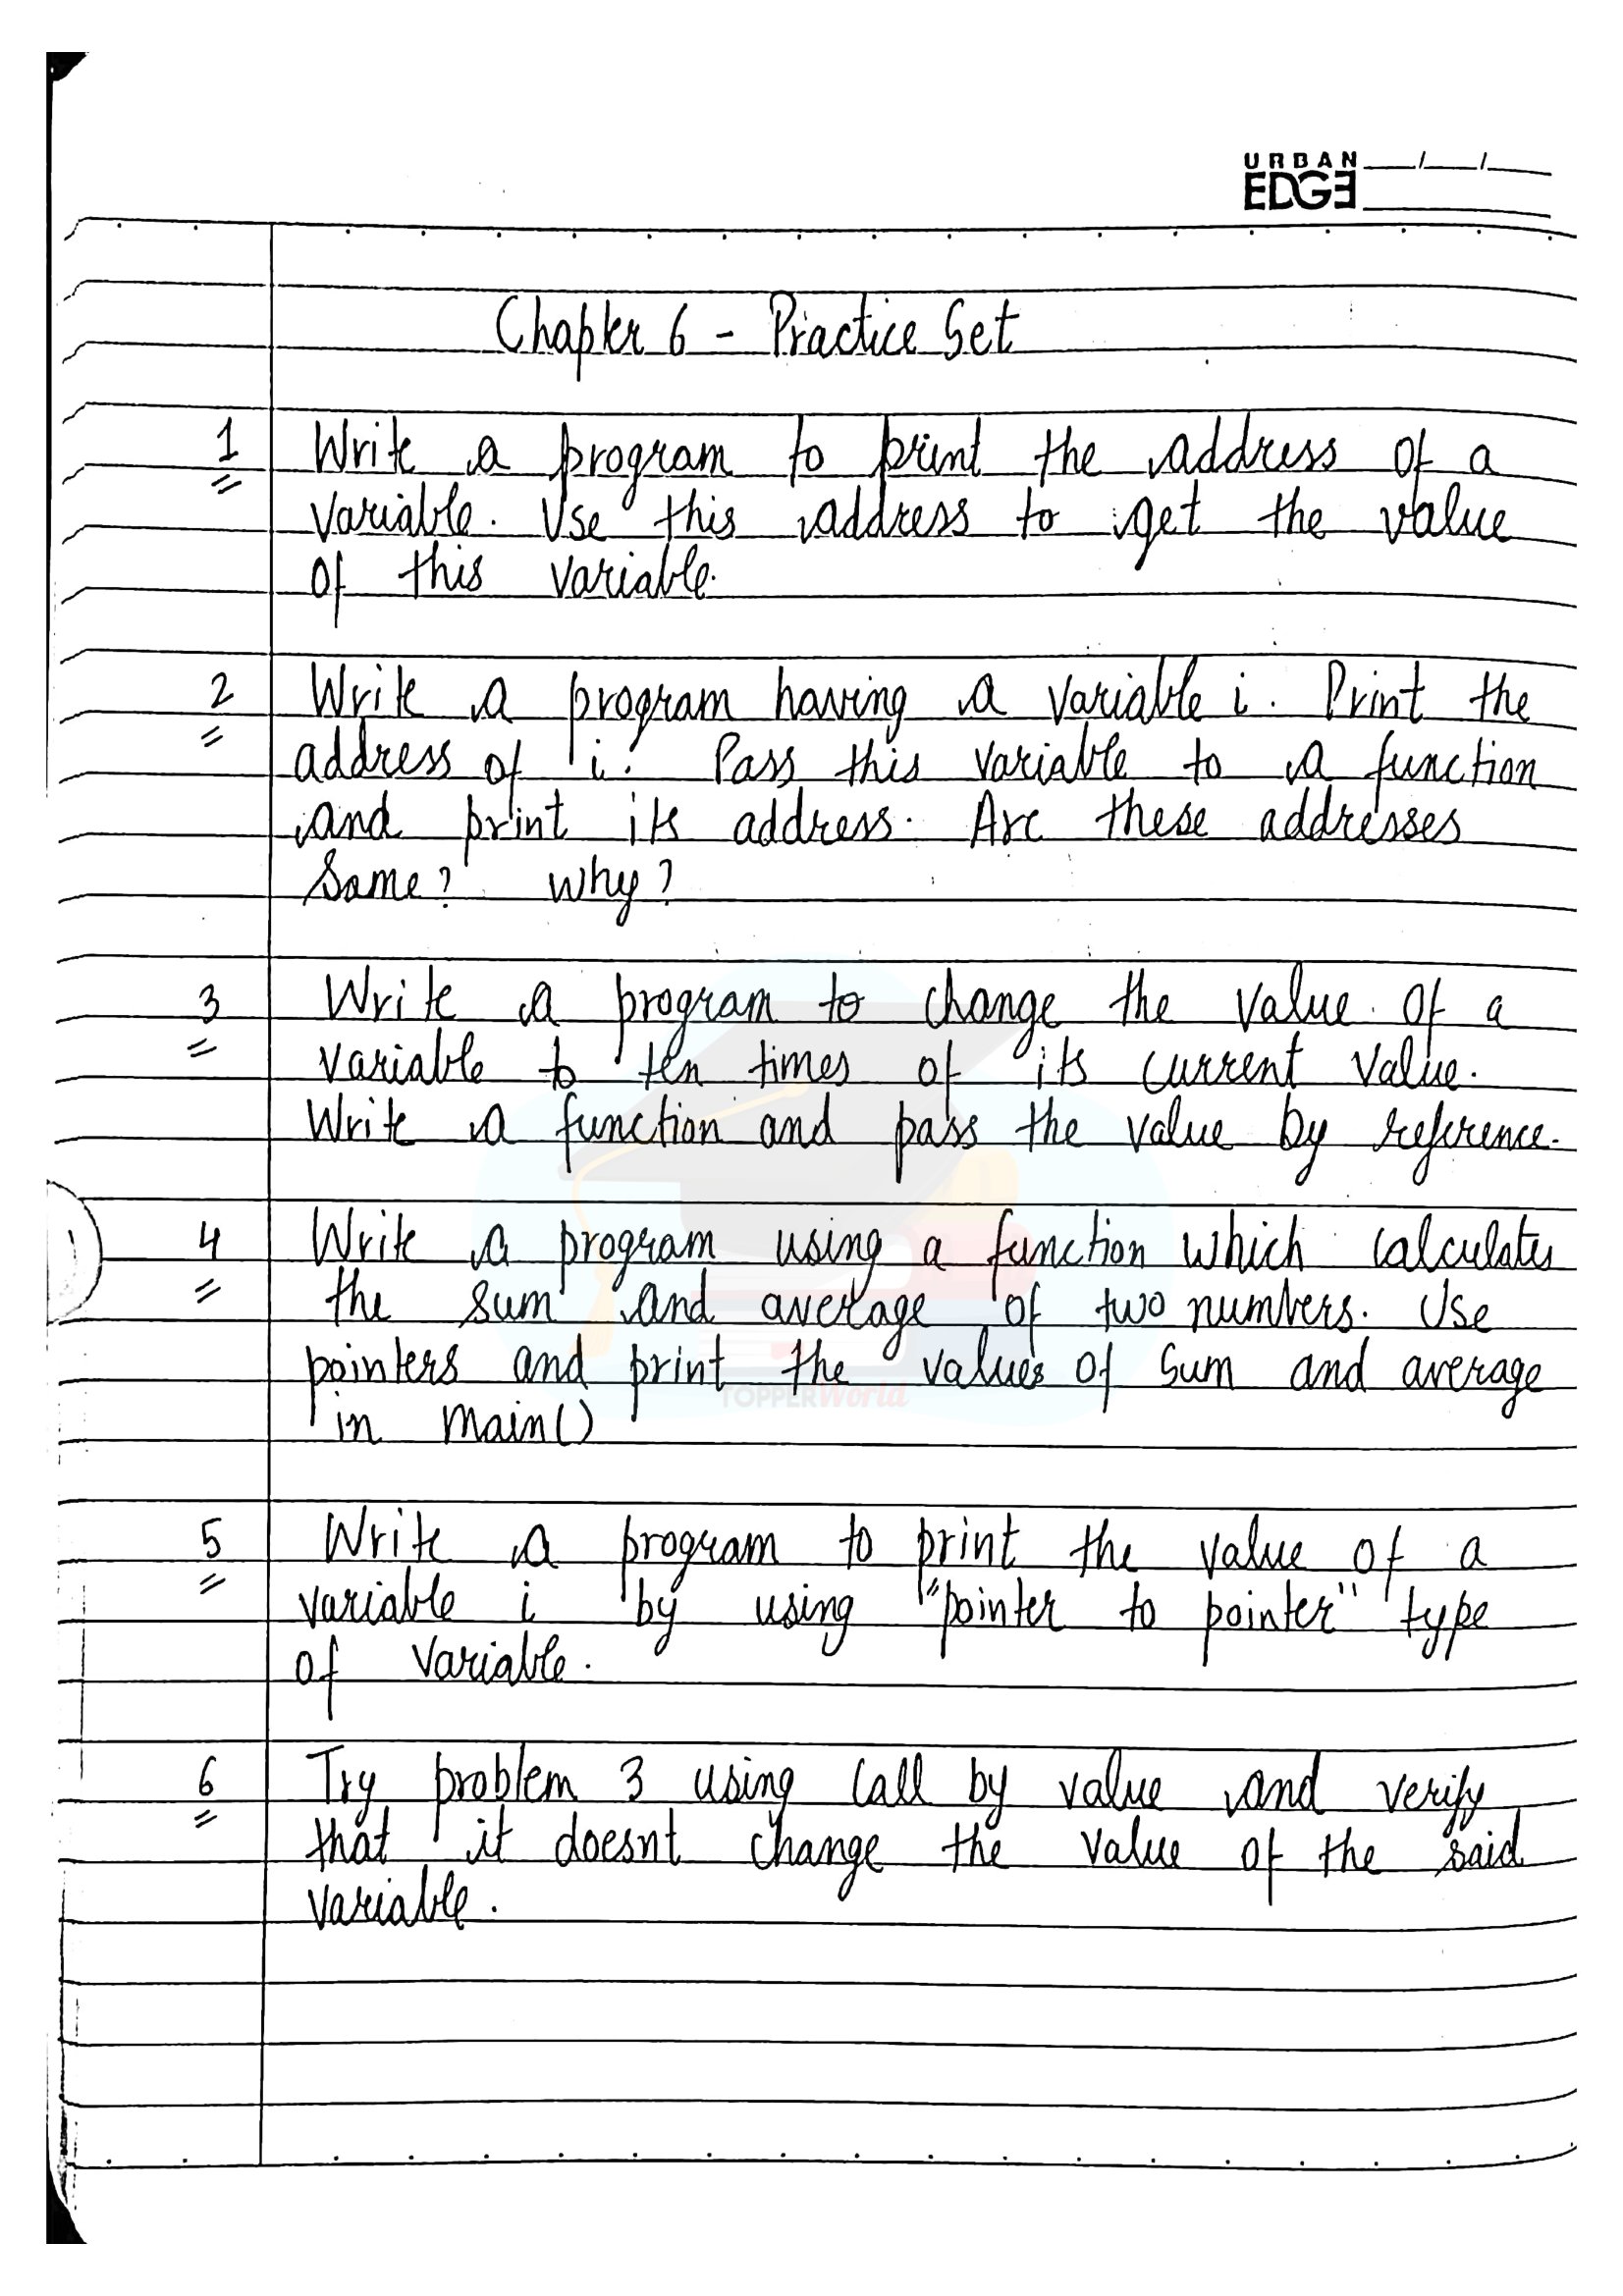 URBAN
EDGE
Chapter 6 - Practice Set
1 Write a program to print the address of a
variable. Use this address to get the value
of this variable.
2 Write a program having a variable i. Print the
address of i. Pass this variable to a function
and print its address. Are these addresses
same? why?
3 Write a program to change the value of a
variable to ten times of its current value.
Write a function and pass the value by reference.
4 Write a program using a function which calculates
the sum and average of two numbers. Use
pointers and print the values of sum and average
in main()
TOPPERWorld
5 Write a program to print the value of a
variable i by using "pointer to pointer" type
of variable.
6 Try problem 3 using call by value and verify
that it doesnt change the value of the said
variable.